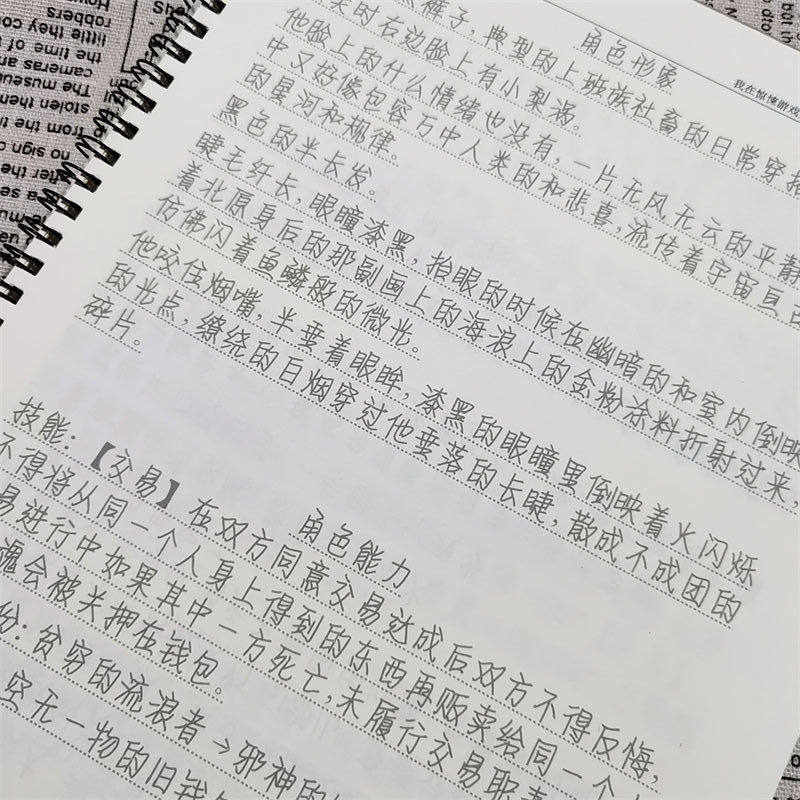 我在惊悚游戏
角色形象
裤子，典型的上班族社畜的日常穿搭
笑时右边脸上有小梨涡。
他脸上的什么情绪也没有，一片无风无云的平静
中又好像包容万中人类的和悲喜，流传着宇宙亘古
的星河和规律。
黑色的半长发。
睫毛纤长，眼瞳漆黑，抬眼的时候在幽暗的和室内倒映
着北原身后的那副画上的海浪上的金粉涂料折射过来，
仿佛闪着鱼鳞般的微光。
他咬住烟嘴，半垂着眼眸，漆黑的眼瞳里倒映着火闪烁
的光点，缭绕的白烟穿过他垂落的长睫，散成不成团的
碎片。
角色能力
技能：【交易】在双方同意交易达成后双方不得反悔，
不得将从同一个人身上得到的东西再贩卖给同一个
易进行中如果其中一方死亡，未履行交易职
魂会被关押在钱包。
份：贫穷的流浪者→邪神的
空无一物的旧钱
no sign
from the
stolen
The
cameras
the time of
little they
robbers